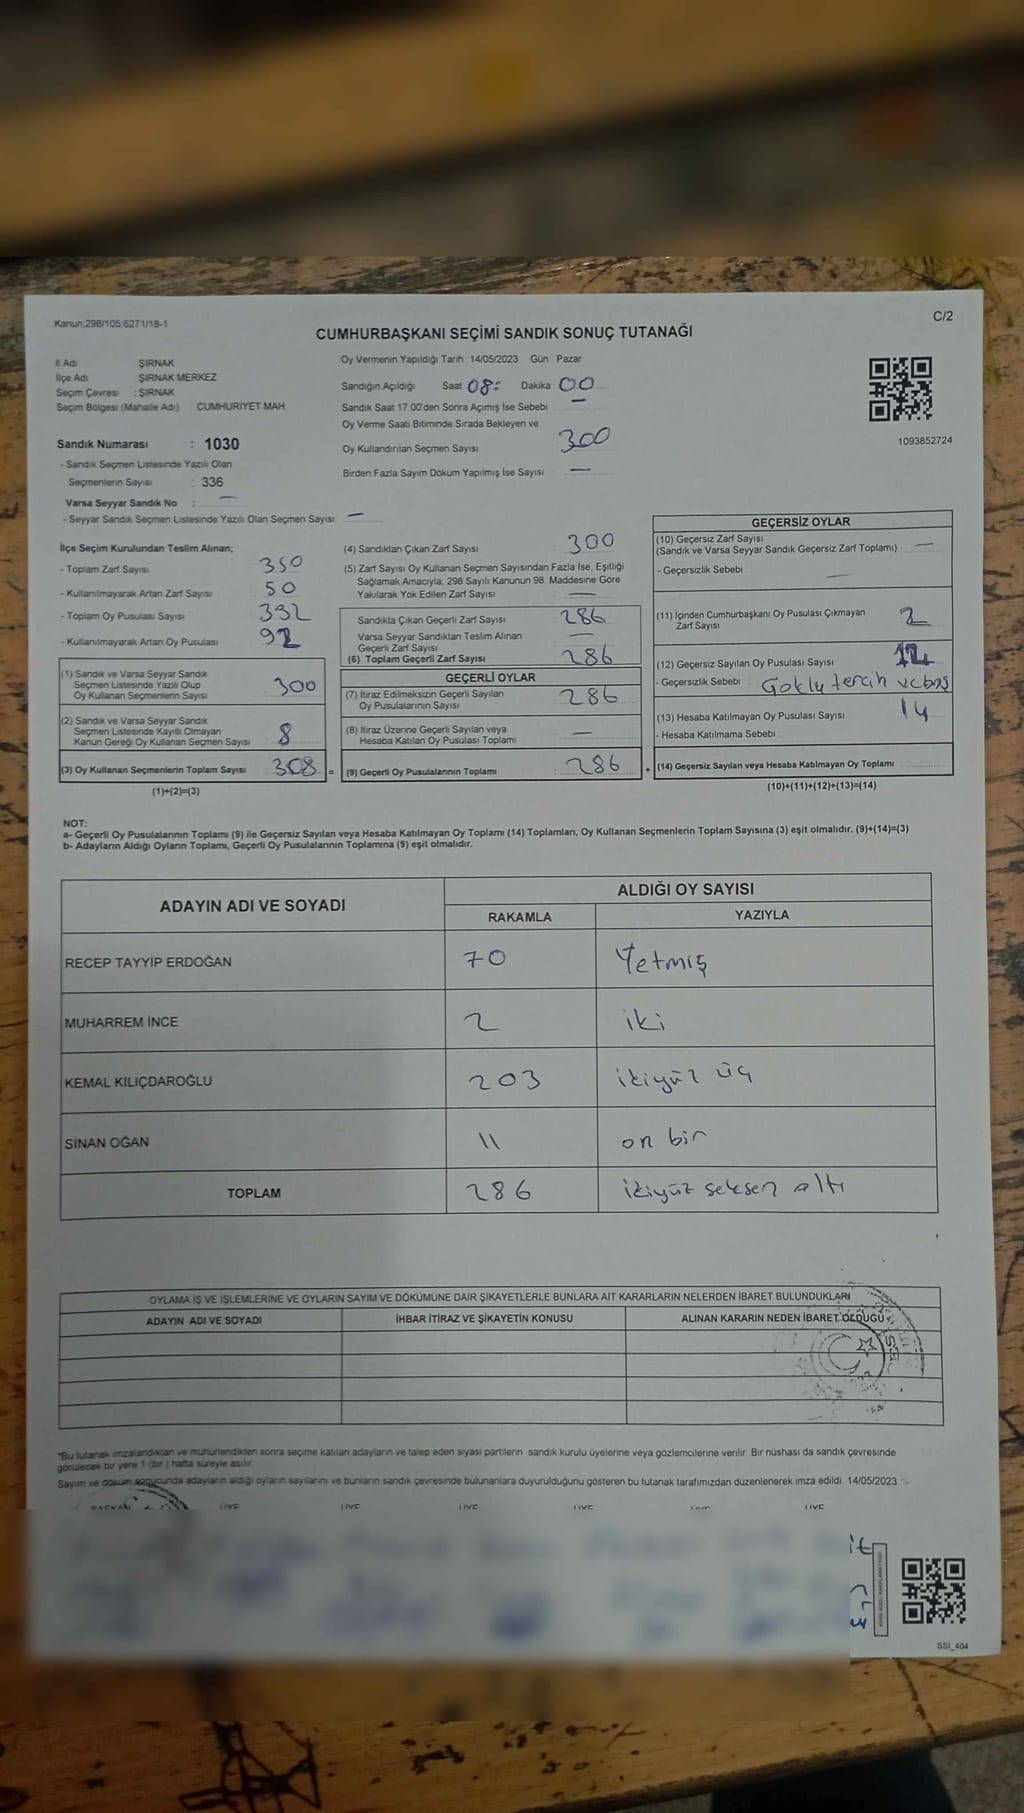 Kanun:298/105;6271/18-1
C/2
CUMHURBAŞKANI SEÇİMİ SANDIK SONUÇ TUTANAĞI
İl Adı : ŞIRNAK
İlçe Adı : ŞIRNAK MERKEZ
Seçim Çevresi : ŞIRNAK
Seçim Bölgesi (Mahalle Adı) : CUMHURİYET MAH.
Sandık Numarası : 1030
- Sandık Seçmen Listesinde Yazılı Olan
Seçmenlerin Sayısı : 336
Varsa Seyyar Sandık No : —
- Seyyar Sandık Seçmen Listesinde Yazılı Olan Seçmen Sayısı : —
Oy Vermenin Yapıldığı Tarih 14/05/2023 Gün Pazar
Sandığın Açıldığı Saat 08: Dakika 00
Sandık Saat 17:00'den Sonra Açımış İse Sebebi —
Oy Verme Saati Bitiminde Sırada Bekleyen ve
Oy Kullandırılan Seçmen Sayısı 300
Birden Fazla Sayım Döküm Yapılmış İse Sayısı —
1093852724
İlçe Seçim Kurulundan Teslim Alınan;
- Toplam Zarf Sayısı 350
- Kullanılmayarak Artan Zarf Sayısı 50
- Toplam Oy Pusulası Sayısı 392
- Kullanılmayarak Artan Oy Pusulası 92
(1) Sandık ve Varsa Seyyar Sandık
Seçmen Listesinde Yazılı Olup
Oy Kullanan Seçmenlerin Sayısı 300
(2) Sandık ve Varsa Seyyar Sandık
Seçmen Listesinde Kayıtlı Olmayan
Kanun Gereği Oy Kullanan Seçmen Sayısı 8
(3) Oy Kullanan Seçmenlerin Toplam Sayısı 308 =
(1)+(2)=(3)
(4) Sandıktan Çıkan Zarf Sayısı 300
(5) Zarf Sayısı Oy Kullanan Seçmen Sayısından Fazla İse, Eşitliği
Sağlamak Amacıyla, 298 Sayılı Kanunun 98. Maddesine Göre
Yakılarak Yok Edilen Zarf Sayısı —
Sandıkta Çıkan Geçerli Zarf Sayısı 286
Varsa Seyyar Sandıktan Teslim Alınan
Geçerli Zarf Sayısı —
(6) Toplam Geçerli Zarf Sayısı 286
GEÇERLİ OYLAR
(7) İtiraz Edilmeksizin Geçerli Sayılan
Oy Pusulalarının Sayısı 286
(8) İtiraz Üzerine Geçerli Sayılan veya
Hesaba Katılan Oy Pusulası Toplamı —
(9) Geçerli Oy Pusulalarının Toplamı : 286 +
GEÇERSİZ OYLAR
(10) Geçersiz Zarf Sayısı
(Sandık ve Varsa Seyyar Sandık Geçersiz Zarf Toplamı) —
- Geçersizlik Sebebi —
(11) İçinden Cumhurbaşkanı Oy Pusulası Çıkmayan
Zarf Sayısı 2
(12) Geçersiz Sayılan Oy Pusulası Sayısı 12
- Geçersizlik Sebebi
(13) Hesaba Katılmayan Oy Pusulası Sayısı 14
- Hesaba Katılmama Sebebi
(14) Geçersiz Sayılan veya Hesaba Katılmayan Oy Toplamı
(10)+(11)+(12)+(13)=(14)
NOT:
a- Geçerli Oy Pusulalarının Toplamı (9) ile Geçersiz Sayılan veya Hesaba Katılmayan Oy Toplamı (14) Toplamları, Oy Kullanan Seçmenlerin Toplam Sayısına (3) eşit olmalıdır. (9)+(14)=(3)
b- Adayların Aldığı Oyların Toplamı, Geçerli Oy Pusulalarının Toplamına (9) eşit olmalıdır.
ADAYIN ADI VE SOYADI
ALDIĞI OY SAYISI
RAKAMLA YAZIYLA
RECEP TAYYİP ERDOĞAN 70 Yetmiş
MUHARREM İNCE 2 iki
KEMAL KILIÇDAROĞLU 203 ikiyüz üç
SİNAN OĞAN 11 on bir
TOPLAM 286 ikiyüz seksen altı
OYLAMA İŞ VE İŞLEMLERİNE VE OYLARIN SAYIM VE DÖKÜMÜNE DAİR ŞİKAYETLERLE BUNLARA AİT KARARLARIN NELERDEN İBARET BULUNDUKLARI
ADAYIN ADI VE SOYADI İHBAR İTİRAZ VE ŞİKAYETİN KONUSU ALINAN KARARIN NEDEN İBARET OLDUĞU
*Bu tutanak imzalandıktan ve mühürlendikten sonra seçime katılan adayların ve talep eden siyasi partilerin sandık kurulu üyelerine veya gözlemcilerine verilir. Bir nüshası da sandık çevresinde
görülecek bir yere 1 (bir) hafta süreyle asılır.
Sayım ve döküm sonucunda adayların aldığı oyların sayılarını ve bunların sandık çevresinde bulunanlara duyurulduğunu gösteren bu tutanak tarafımızdan düzenlenerek imza edildi. 14/05/2023
BAŞKAN ÜYE ÜYE ÜYE ÜYE ÜYE ÜYE
SSİ_404